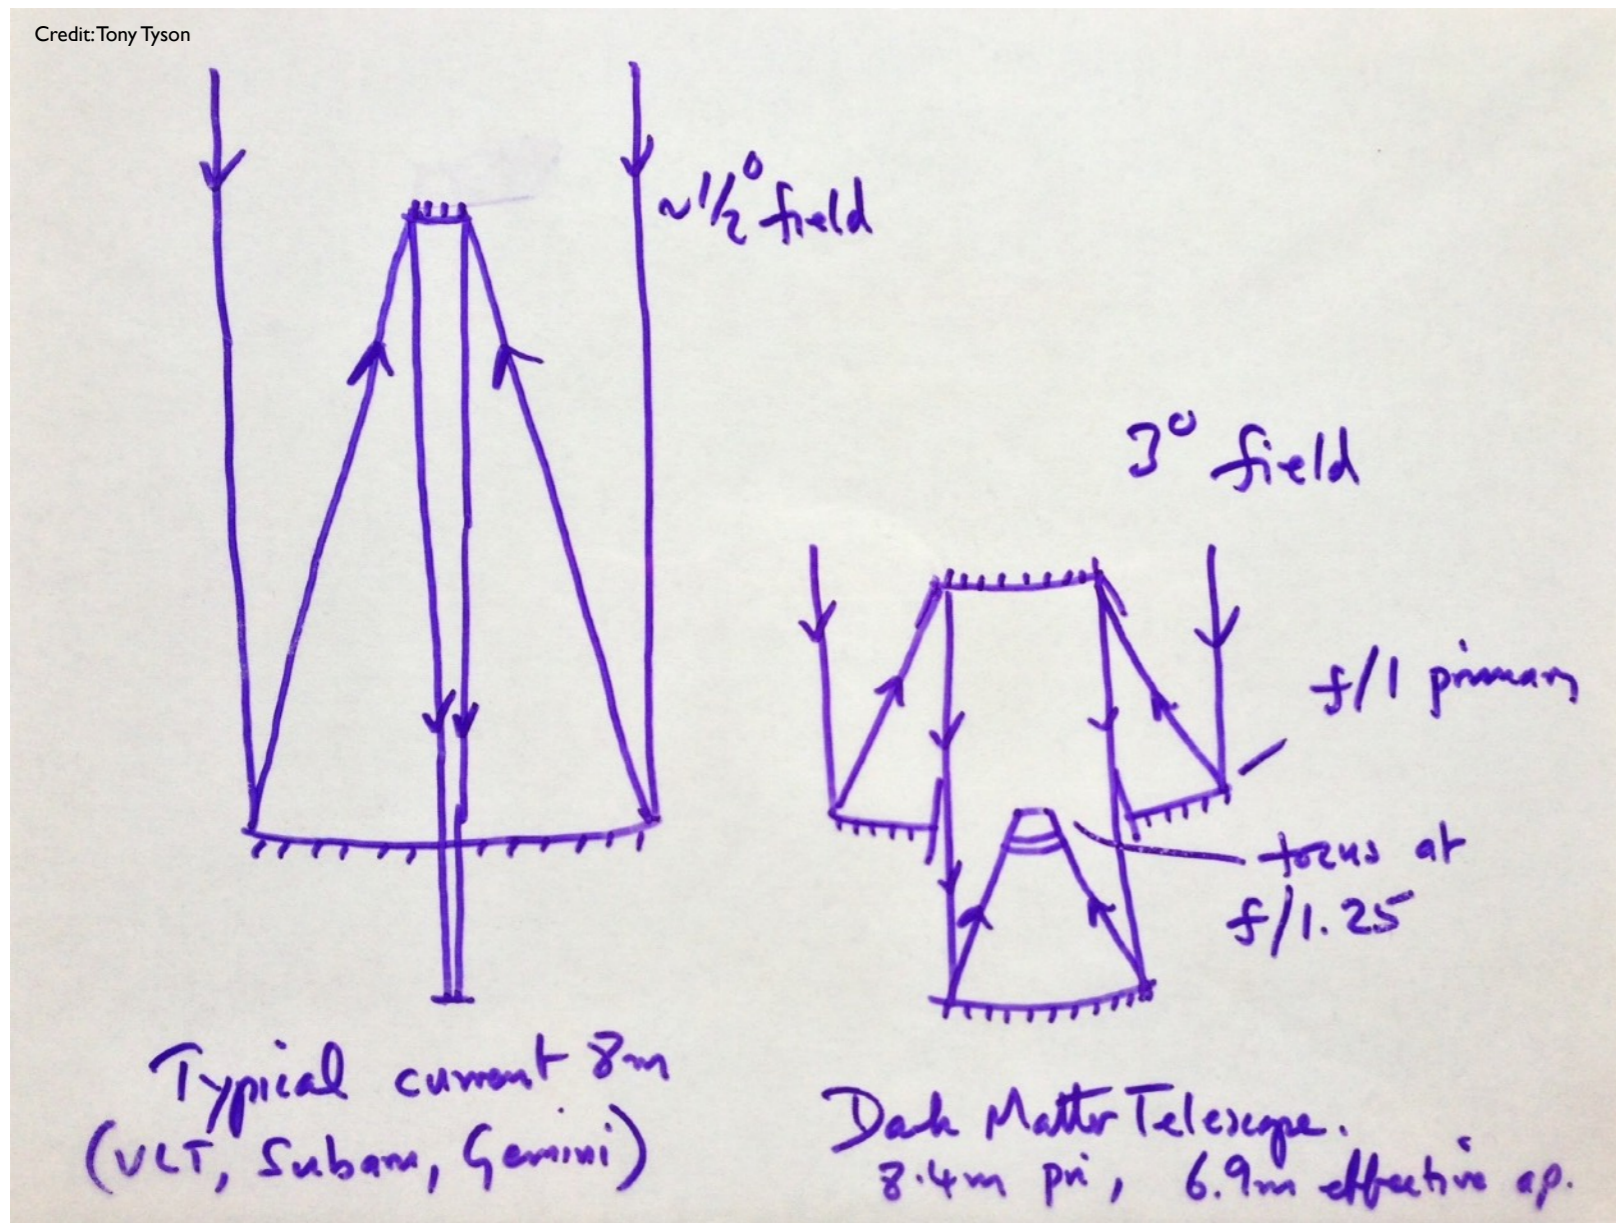 Credit: Tony Tyson
~1/2° field
3° field
f/1 primary
focus at
f/1.25
Typical current 8m
(VLT, Subaru, Gemini)
Dark Matter Telescope.
8.4m pri, 6.9m effective ap.